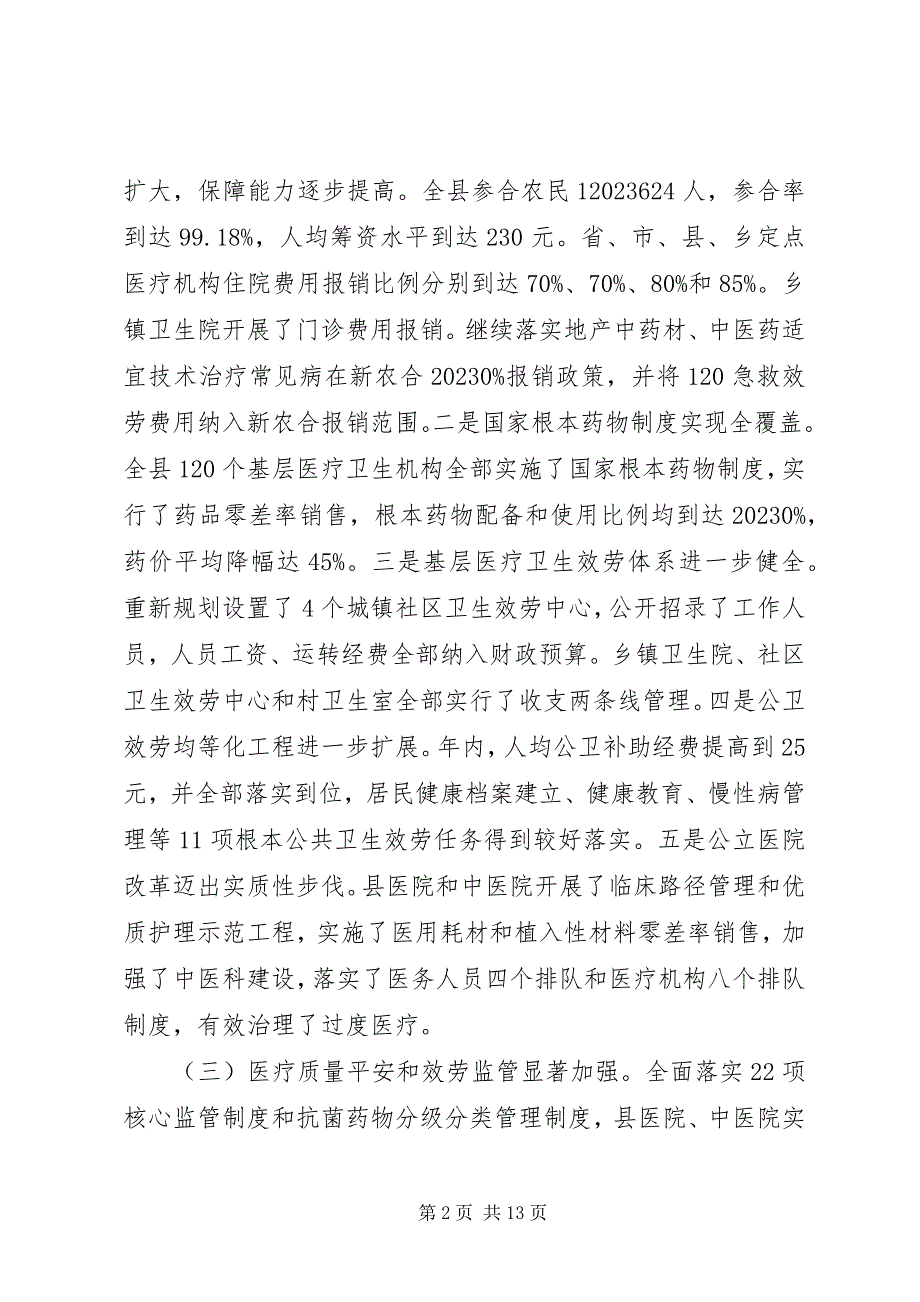 扩大，保障能力逐步提高。全县参合农民 12023624 人，参合率
到达 99.18%，人均筹资水平到达 230 元。省、市、县、乡定点
医疗机构住院费用报销比例分别到达 70%、70%、80%和 85%。乡
镇卫生院开展了门诊费用报销。继续落实地产中药材、中医药适
宜技术治疗常见病在新农合 20230%报销政策，并将 120 急救效
劳费用纳入新农合报销范围。二是国家根本药物制度实现全覆盖。
全县 120 个基层医疗卫生机构全部实施了国家根本药物制度，实
行了药品零差率销售，根本药物配备和使用比例均到达 20230%，
药价平均降幅达 45%。三是基层医疗卫生效劳体系进一步健全。
重新规划设置了 4 个城镇社区卫生效劳中心，公开招录了工作人
员，人员工资、运转经费全部纳入财政预算。乡镇卫生院、社区
卫生效劳中心和村卫生室全部实行了收支两条线管理。四是公卫
效劳均等化工程进一步扩展。年内，人均公卫补助经费提高到 25
元，并全部落实到位，居民健康档案建立、健康教育、慢性病管
理等 11 项根本公共卫生效劳任务得到较好落实。五是公立医院
改革迈出实质性步伐。县医院和中医院开展了临床路径管理和优
质护理示范工程，实施了医用耗材和植入性材料零差率销售，加
强了中医科建设，落实了医务人员四个排队和医疗机构八个排队
制度，有效治理了过度医疗。
（三）医疗质量平安和效劳监管显著加强。全面落实 22 项
核心监管制度和抗菌药物分级分类管理制度，县医院、中医院实
第 2 页 共 13 页